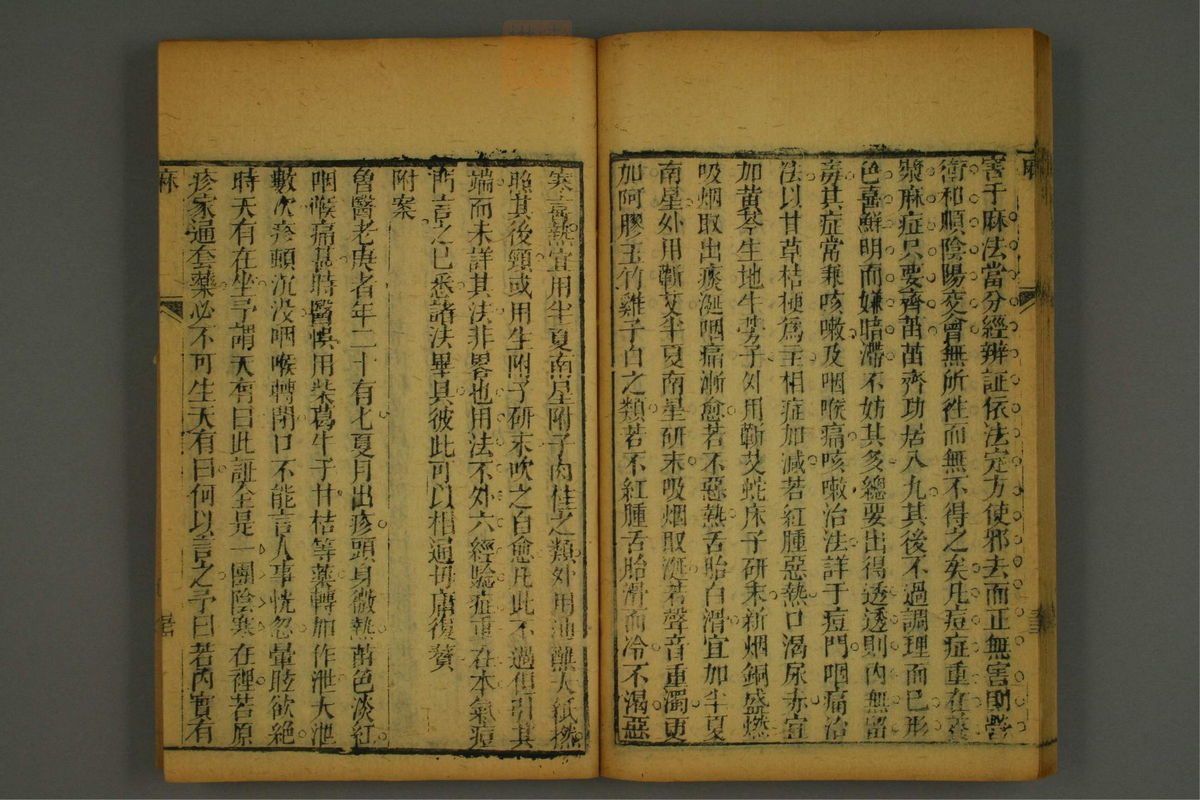 害于麻法當分經辨証依法定方使邪去而正無害則營
衛和順陰陽交會無所往而無不得之矣凡痘症重在養
漿麻症只要齊苗苗齊功居八九其後不過調理而已形
色喜鮮明而嫌暗滯不妨其多總要出得透透則內無留
毒其症常兼咳嗽及咽喉痛咳嗽治法詳于痘門咽痛治
法以甘草桔梗為主相症加減若紅腫惡熱口渴尿赤宜
加黃芩生地牛蒡子外用蘄艾蛇床子研末新烟銅盛燃
吸烟取出痰涎咽痛漸愈若不惡熱舌胎白滑宜加半夏
南星外用蘄艾半夏南星研末吸烟取涎若聲音重濁更
加阿膠玉竹雞子白之類若不紅腫舌胎滑而冷不渴惡
寒喜熱宜用半夏南星附子肉桂之類外用油蘸大紙撚
其後頸或用生附子研末吹之自愈凡此不過但引其
端而未詳其法非畧也用法不外六經驗症重在本氣痘
門言之已悉諸法畢具彼此可以相通毋庸復贅
附案
魯醫老庚者年二十有七夏月出疹頭身微熱苗色淡紅
咽喉痛甚時醫悞用柴葛牛子甘桔等藥轉加作泄大泄
數次疹頓沉没咽喉轉閉口不能言人事恍忽暈眩欲絕
時天有在坐予謂天有曰此証全是一團陰寒在裡若原
疹家通套藥必不可生天有曰何以言之予曰若內實有
麻
麻